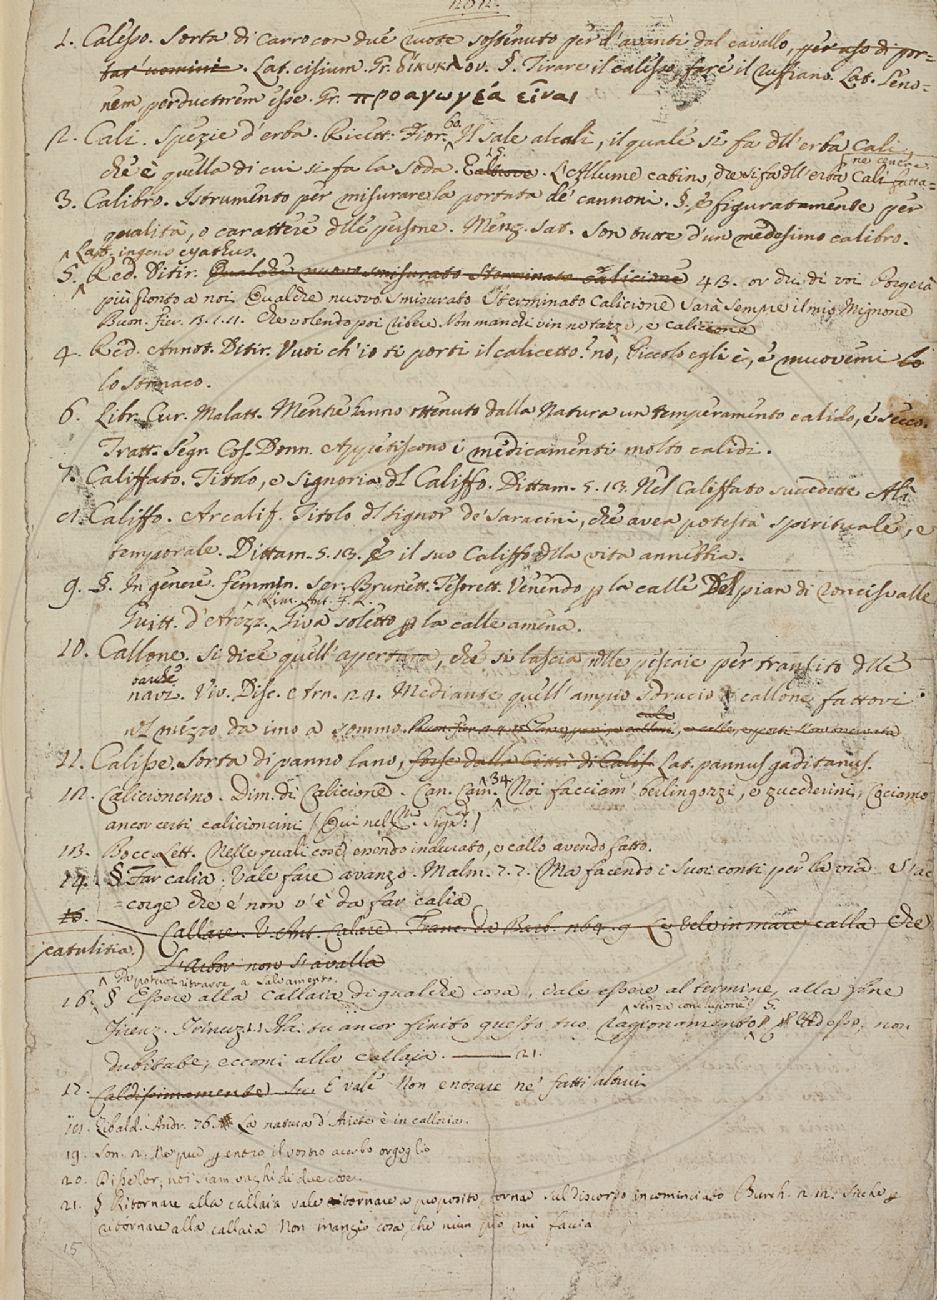 1. Calesso. Sorta di carro con due ruote sostenuto per d'avanti dal cavallo, per uso di por-
tar' uomini. Lat. cisium. Gr. δίκυκλον. §. Tirare il calesso, fare il Ruffiano. Lat. Leno-
nem perductorem esse. Gr. προαγωγέα είναι
2. Cali. Spezie d'erba. Ricett. Fior. 60. Il sale alcali, il quale si fa dll'erba Cali,
che è quella di cui si fa la soda. E altrove. 15. L'Allume catino, che si fa dll'erba Cali fatta-
ne cenere
3. Calibro. Istrumento per misurare la portata de' cannoni. §. E figuratamente per
qualità, o carattere dlle persone. Menz. Sat. Son tutte d'un medesimo calibro.
Lat. ingens cyathus.
5. Red. Ditir. Qualche nuovo smisurato Sterminato calicione 43. or che di voi Porgerà
più pronto a noi Qualche nuovo smisurato Sterminato Calicione Sarà sempre il mio Mignone
Buon. Fier. 3. 1. 11. Che volendo poi bere Non manchi vin ne tazze, e calicione
4. Red. Annot. Ditir. Vuoi ch'io ti porti il calicetto? nò, Piccolo egli è, e muovemi lo
lo stomaco.
6. Libr. Cur. Malatt. Mentre hanno ottenuto dalla Natura un temperamento calido, e secco.
Tratt. Segr. Cos. Donn. Appetiscono i medicamenti molto calidi.
7. Califfato. Titolo, e Signoria dl Califfo. Dittam. 5. 13. Nel Califfato succedette Alà
8. Califfo. Arcalif. Titolo dl signor de' Saracini, che avea potestà spirituale, e
temporale. Dittam. 5. 13. E il suo Califfo dlla vita annessa.
9. §. In genere femmin. Ser. Brunett. Tesorett. Venendo p la calle Del pian di Roncisvalle
Guitt. d'Arezz. Rim. Ant. F. R. Giva soletto p la calle amena.
10. Callone. Si dice quell'apertura, che si lascia nlle pescaie per transito dlle
barche
navi. Viv. Disc. Arn. 29. Mediante quell'ampio sdrucio callone fattovi
nl mezzo da imo a sommo.
11. Calisse. Sorta di panno lano, forse dalla Città di Calis. Lat. pannus gaditanus.
12. Calicioncino. Dim. di Calicione. Can. Carn. 34. Noi facciam' berlingozzi, e zuccherini, Cociamo
ancor certi calicioncini (Qui nel N. Sign.)
13. Bocc. Lett. Nelle quali cose essendo indurato, e callo avendo fatto.
14. § Far calia. Vale fare avanzo. Malm. 7. 7. Ma facendo i suoi conti per la via S'ac-
=corge che e' non v'è da far calia
16.
Callare. V. Ant. Calare. Franc. da Barb. 264. 9 calla che
L'arbor non s'avalla
catulitia.
Da potersi ritrarre a salvamento.
16. § Essere alla callaia di qualche cosa, vale essere al termine, alla fine
senza conclusione? 5.
Firenz. Trinuz. Ha' tu ancor finito questo tuo ragionamento Adesso, non
dubitare, eccomi alla callaia. —— 21.
17. Caldissimamente E vale Non entrare ne' fatti altrui
18. Zibald. Andr. 76. La natura d'Ariete è in callaia.
19. Son. 2. Ne può p entro il vostro acerbo orgoglio
20. Disselor, noi siam vaghi di due cose.
21. § Ritornare alla callaia vale ritornare a proposito, tornar sul discorso incominciato Burch. 2. 12.
ritornare alla callaia Non mangio cosa, che niun prò mi faccia
15